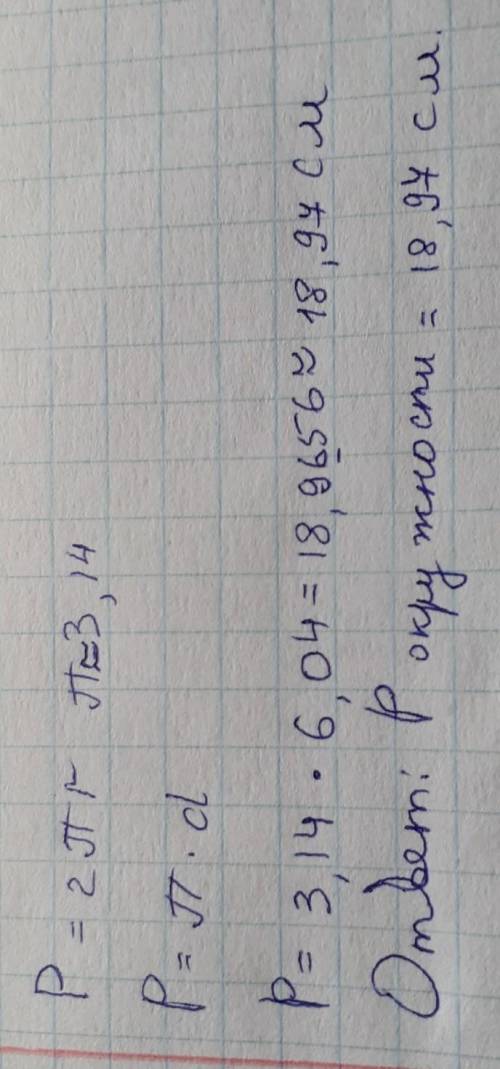 P = 2πr π≈3,14
P = π · d
P = 3,14 · 6,04 = 18,9656 ≈ 18,97 см
Ответ: P окружности = 18,97 см.